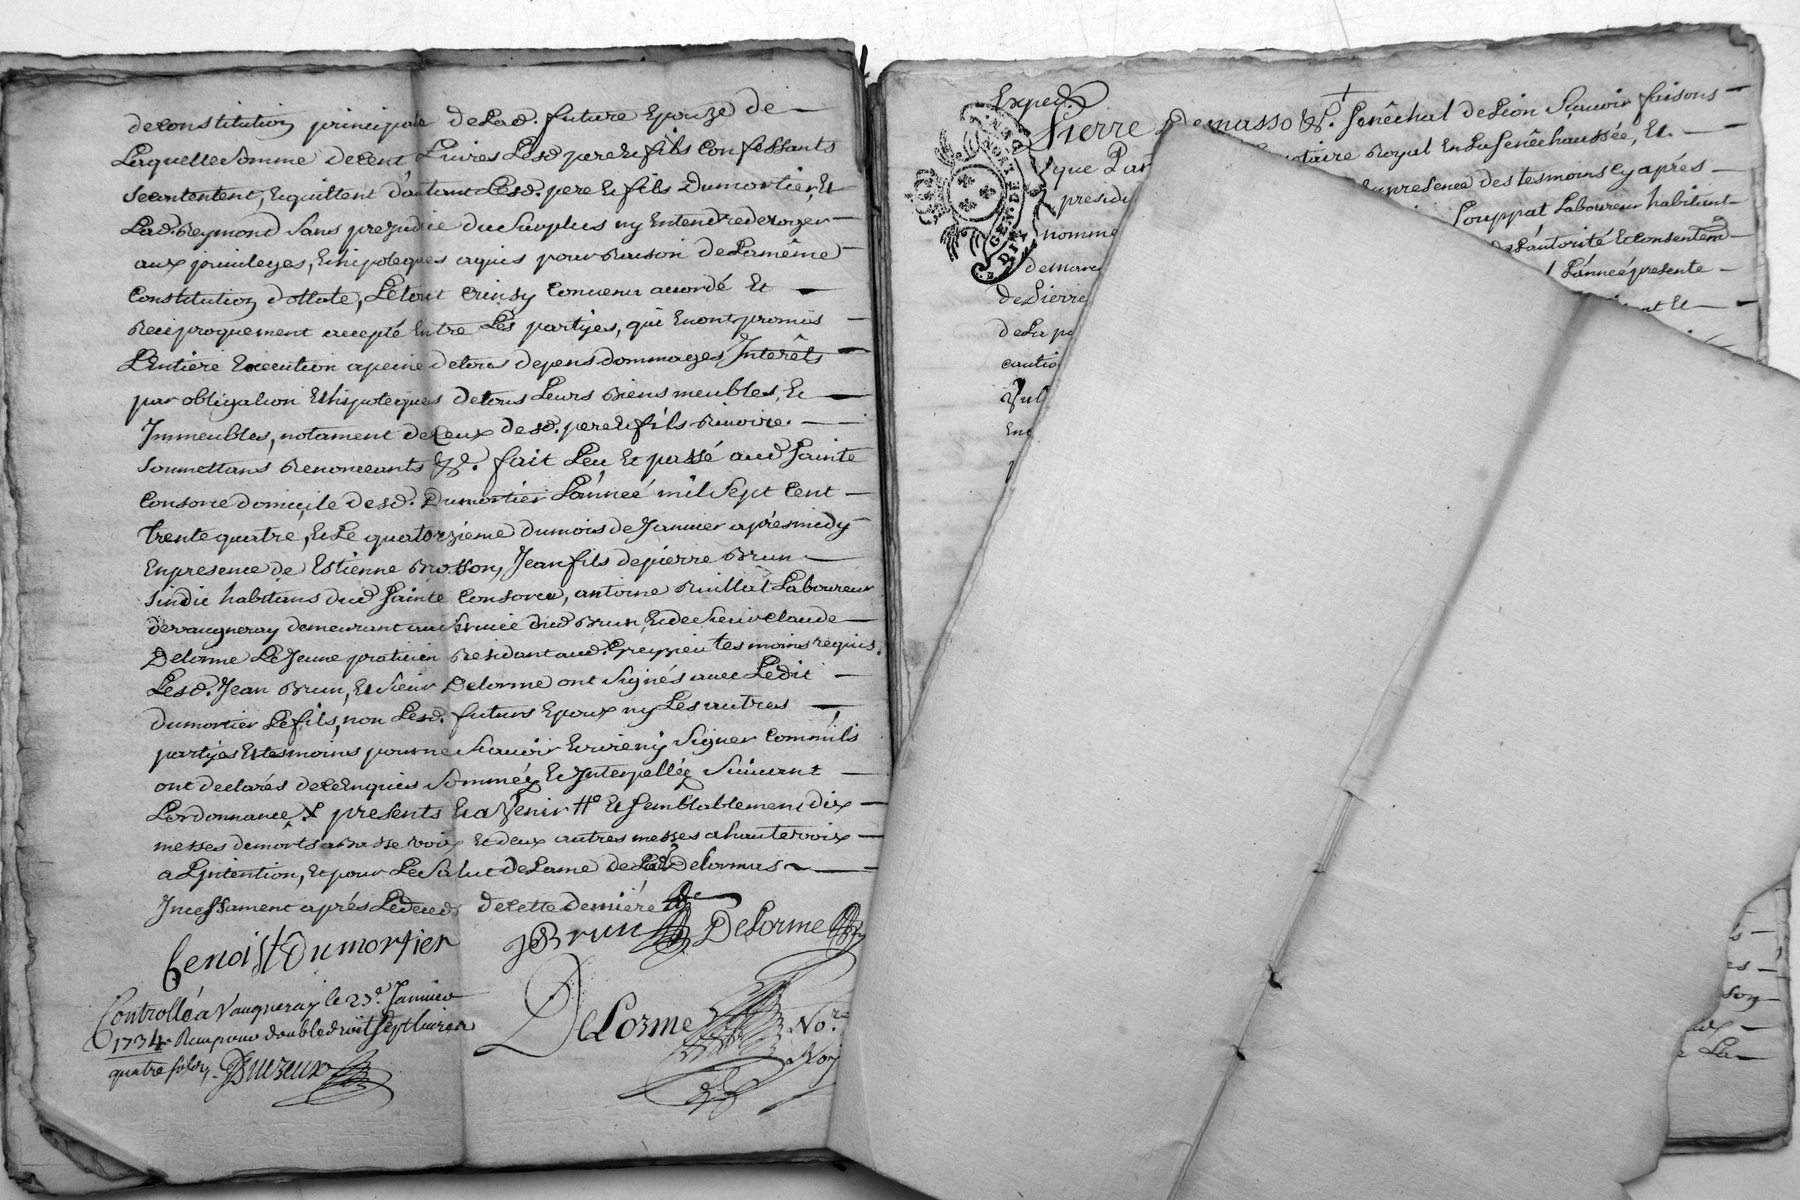 de constitution principale de Lad. future Epouze de
Laquelle Somme de Cent Livres Lesd. pere et fils Confessants
Se contentent, Et quittent d'autant Lesd. pere Et fils Dumortier, Et
Lad. Reymond Sans prejudice du Surplus ny Entendre deroger
aux privileges, Et hipoteques aquis pour Raison de La même
Constitution dottale, Le tout Ainsy Convenu accordé Et
Reciproquement accepté Entre Les partyes, qui En ont promis
L'Entiere Execution a peine de tous depens dommages Interêts
par obligation Et hipoteques de tous Leurs Biens meubles, Et
Immeubles, notament de Ceux desd. pere et fils Rivoire.
Soumettans Renonceants &. fait Leu Et passé aud Sainte
Consorce domicile desd. Dumortier L'année mil Sept Cent
trente quatre, Et Le quatorzieme du mois de Janvier aprés midy
En presence de Estienne Brosson, Jean fils de pierre Brun
Sindic habitans dud Sainte Consorce, antoine Ruillat Laboureur
de vaugneray demeurant au Service dud Brun, Et de Sieur Claude
Delorme Le Jeune praticien Residant aud. Greyzieu tesmoins requis.
Lesd. Jean Brun, Et Sieur Delorme ont Signés avec Ledit
dumortier Le fils, non Lesd. futurs Epoux ny Les autres
partyes Et tesmoins pour ne Sçavoir Ecrire ny Signer Comm'ils
ont declarés de ce Enquis Sommés Et Interpellés Suivant
L'ordonnance, X presents Et a Venir # Et Semblablement dix
messes de morts a Basse voix Et deux autres messes a haute voix
a L'Intention, Et pour Le Salut de L'ame de Lad. Delormas
Incessament aprés Le deceds de cette derniére
Benoist Dumortier
JBrun Delorme
Controllé a Vaugneray le 23e. Janvier
1734 Receu pour double droit Sept livres
quatre sols
Delorme No.re
Roy
Exped
Pierre Demasso &. Senêchal de Lion Sçavoir faisons
que Par
notaire Royal En La Senêchaussée, Et
presid
En presence des tesmoins Cy aprés
nomme
Souppat Laboureur habitant
de L'autorité Et Consentem
de Pierre
L'année presente
de La
cautio
GEN. DE